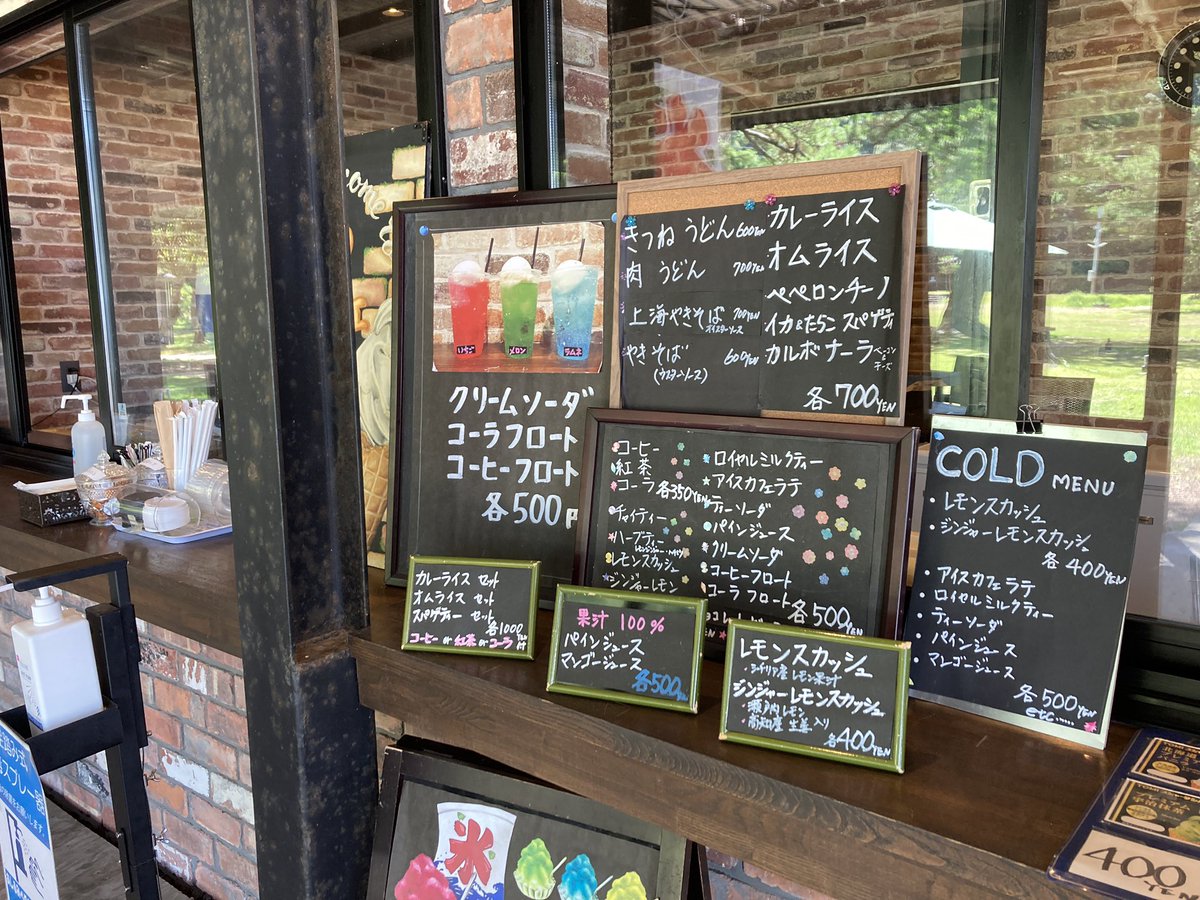 come
いちご
メロン
ラムネ
クリームソーダ
コーラフロート
コーヒーフロート
各500円
きつねうどん 600YEN
肉うどん 700YEN
上海やきそば 700YEN
オイスターソース
やきそば 600YEN
(ウスターソース)
カレーライス
オムライス
ペペロンチーノ
イカ&たらこ スパゲティ
カルボナーラ ベーコン
チーズ
各700YEN
コーヒー
紅茶
コーラ 各350YEN
チャイティー
ハーブティー
レモンスカッシュ
ジンジャーレモン
ロイヤルミルクティー
★アイスカフェラテ
ティーソーダ
パインジュース
クリームソーダ
コーヒーフロート
コーラフロート
各500YEN
COLD MENU
・レモンスカッシュ
・ジンジャーレモンスカッシュ
各400YEN
・アイスカフェラテ
・ロイヤルミルクティー
・ティーソーダ
・パインジュース
・マンゴージュース
各500YEN
etc……
カレーライス セット
オムライス セット
スパゲティー セット
各1000YEN
コーヒー or 紅茶 or コーラ付
果汁100%
パインジュース
マンゴージュース
各500YEN
レモンスカッシュ
・シチリア産レモン果汁
ジンジャーレモンスカッシュ
・瀬戸内レモン
・高知産生姜入り
各400YEN
氷
北海道
400
YEN